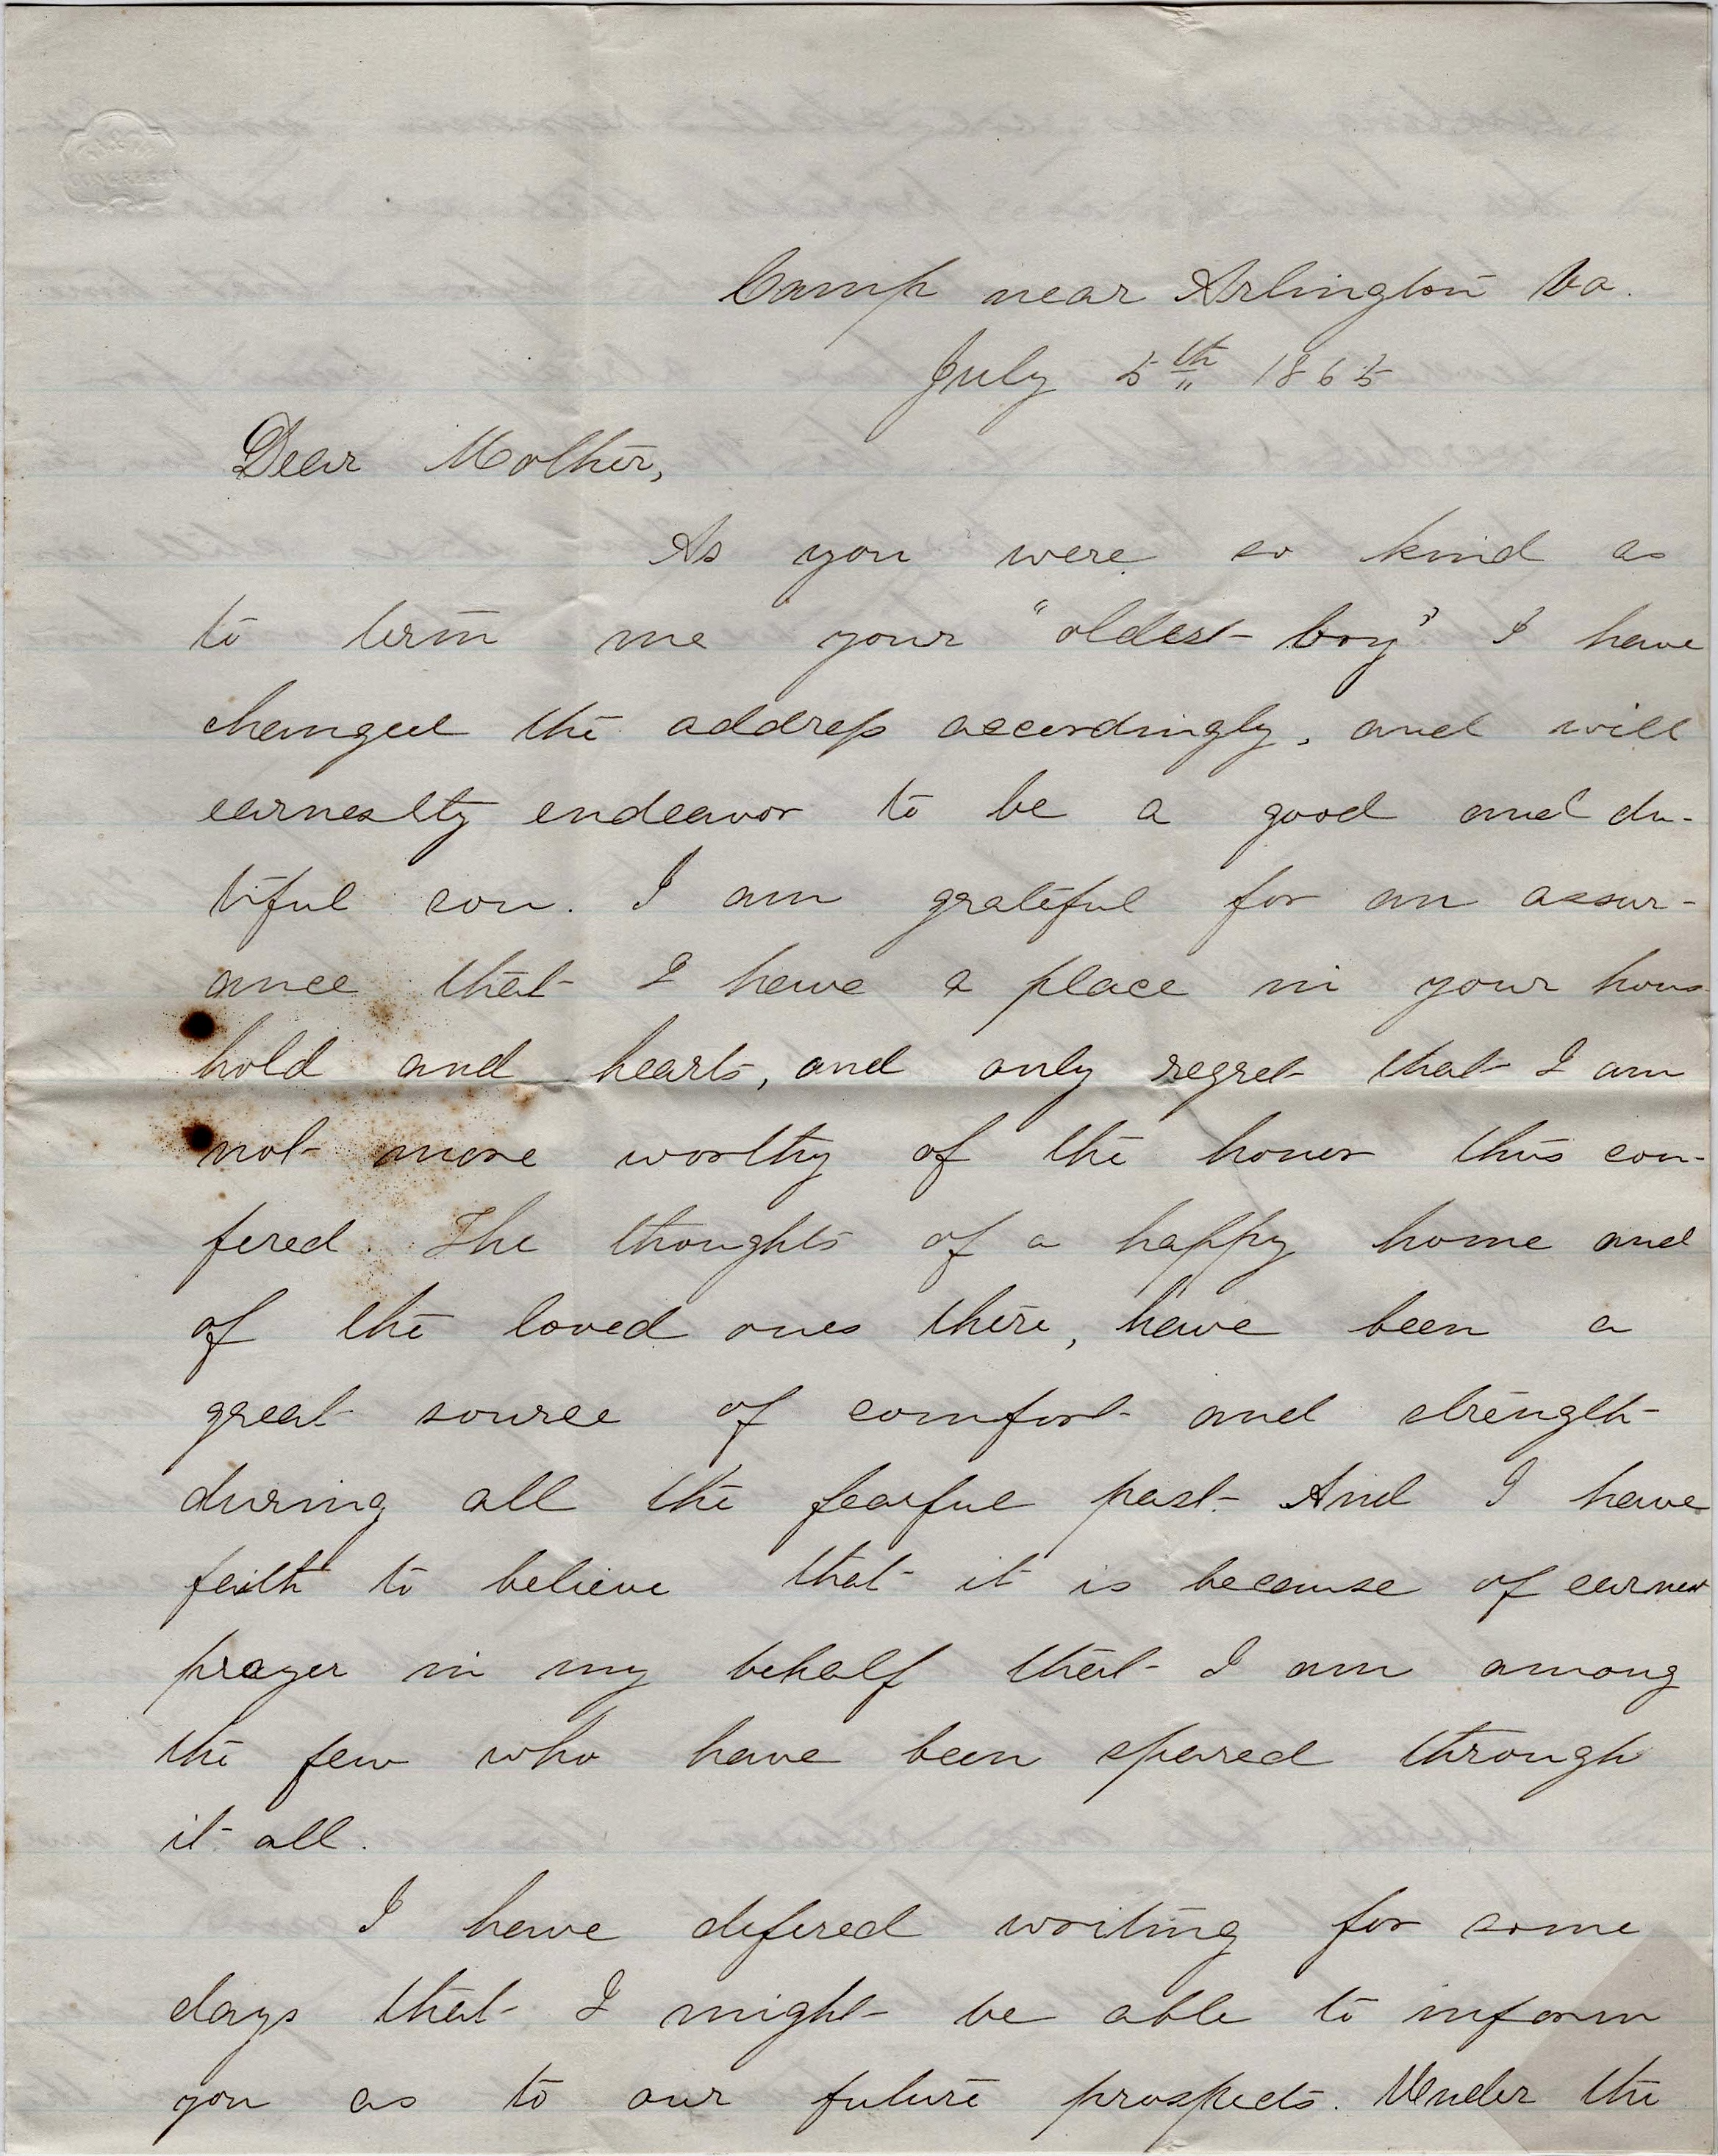 Camp near Arlington Va.
July 5th 1865
Dear Mother,
As you were so kind as
to term me your "oldest boy" I have
changed the address accordingly, and will
earnestly endeavor to be a good and du-
tiful son. I am grateful for an assur-
ance that I have a place in your hous
hold and hearts, and only regret that I am
not more worthy of the honor thus con-
fered. The thoughts of a happy home and
of the loved ones there, have been a
great source of comfort and strength
during all the fearful past. And I have
faith to believe that it is because of earnest
prayer in my behalf that I am among
the few who have been spared through
it all.
I have defered writing for some
days that I might be able to inform
you as to our future prospects. Under the